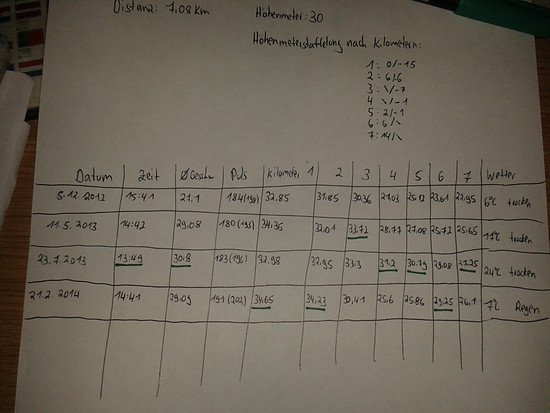 Distanz: 7.08 Km Höhenmeter: 30
Höhenmeterstaffelung nach Kilometern:
1: 0/-15
2: 6/6
3: \/-7
4 \/-1
5: 2/-1
6: 6/\
7: 14/\
Datum Zeit Ø Geschw. Puls Kilometer 1 2 3 4 5 6 7 Wetter
5.12.2012 15:41 27,1 184(190) 32.85 31.85 30.36 27.03 25.12 23.61 22.95 6°C trocken
11.5.2013 14:42 29,08 180(193) 34.35 32.01 33.72 28.77 27.08 25.72 25.65 17°C trocken
23.7.2013 13:49 30.8 183(196) 32.98 32.95 33.3 31.2 30.79 29.08 27.25 24°C trocken
21.2.2014 14:41 29.09 191(202) 34.65 34.23 30,41 25.6 25.86 29.25 26,1 7°C Regen